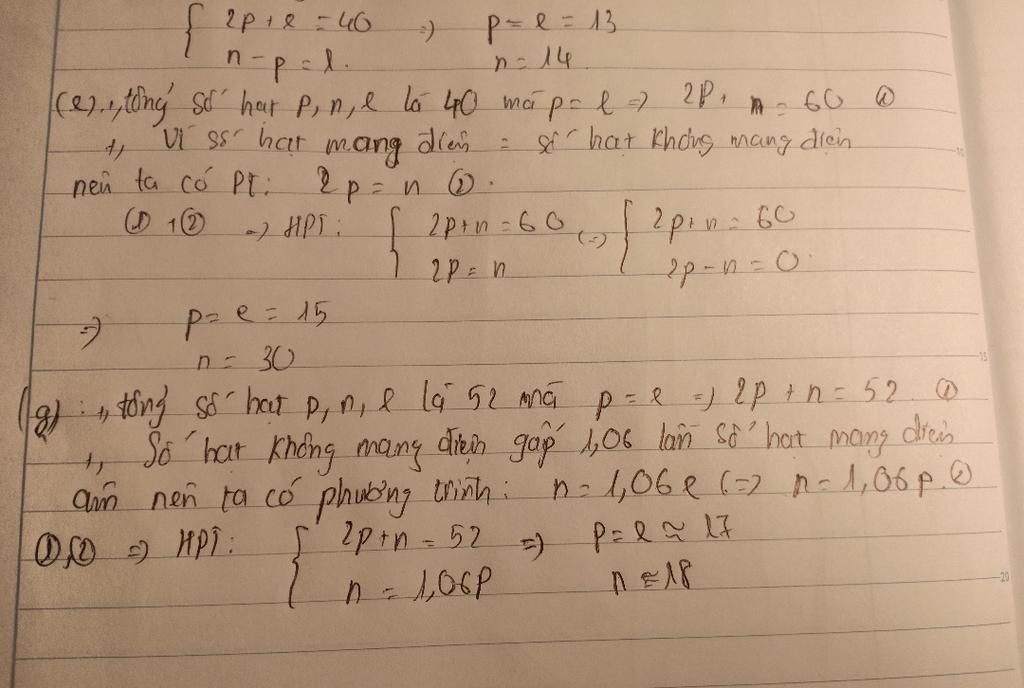 2p + e = 40 => p = e = 13
n - p = 1. n = 14
(e). +, tổng số hạt p, n, e là 40 mà p = e => 2p + n = 60 ①
+, Vì số hạt mang điện = số hạt không mang điện
nên ta có PT: 2p = n ②.
① + ② => HPT: { 2p + n = 60 (=) { 2p + n = 60
2p = n 2p - n = 0
=> p = e = 15
n = 30
(g): +, tổng số hạt p, n, e là 52 mà p = e => 2p + n = 52. ①
+, Số hạt không mang điện gấp 1,06 lần số hạt mang điện
âm nên ta có phương trình: n = 1,06e (=) n = 1,06p. ②
①, ② => HPT: { 2p + n = 52 => p = e ≈ 17
n = 1,06p n ≈ 18